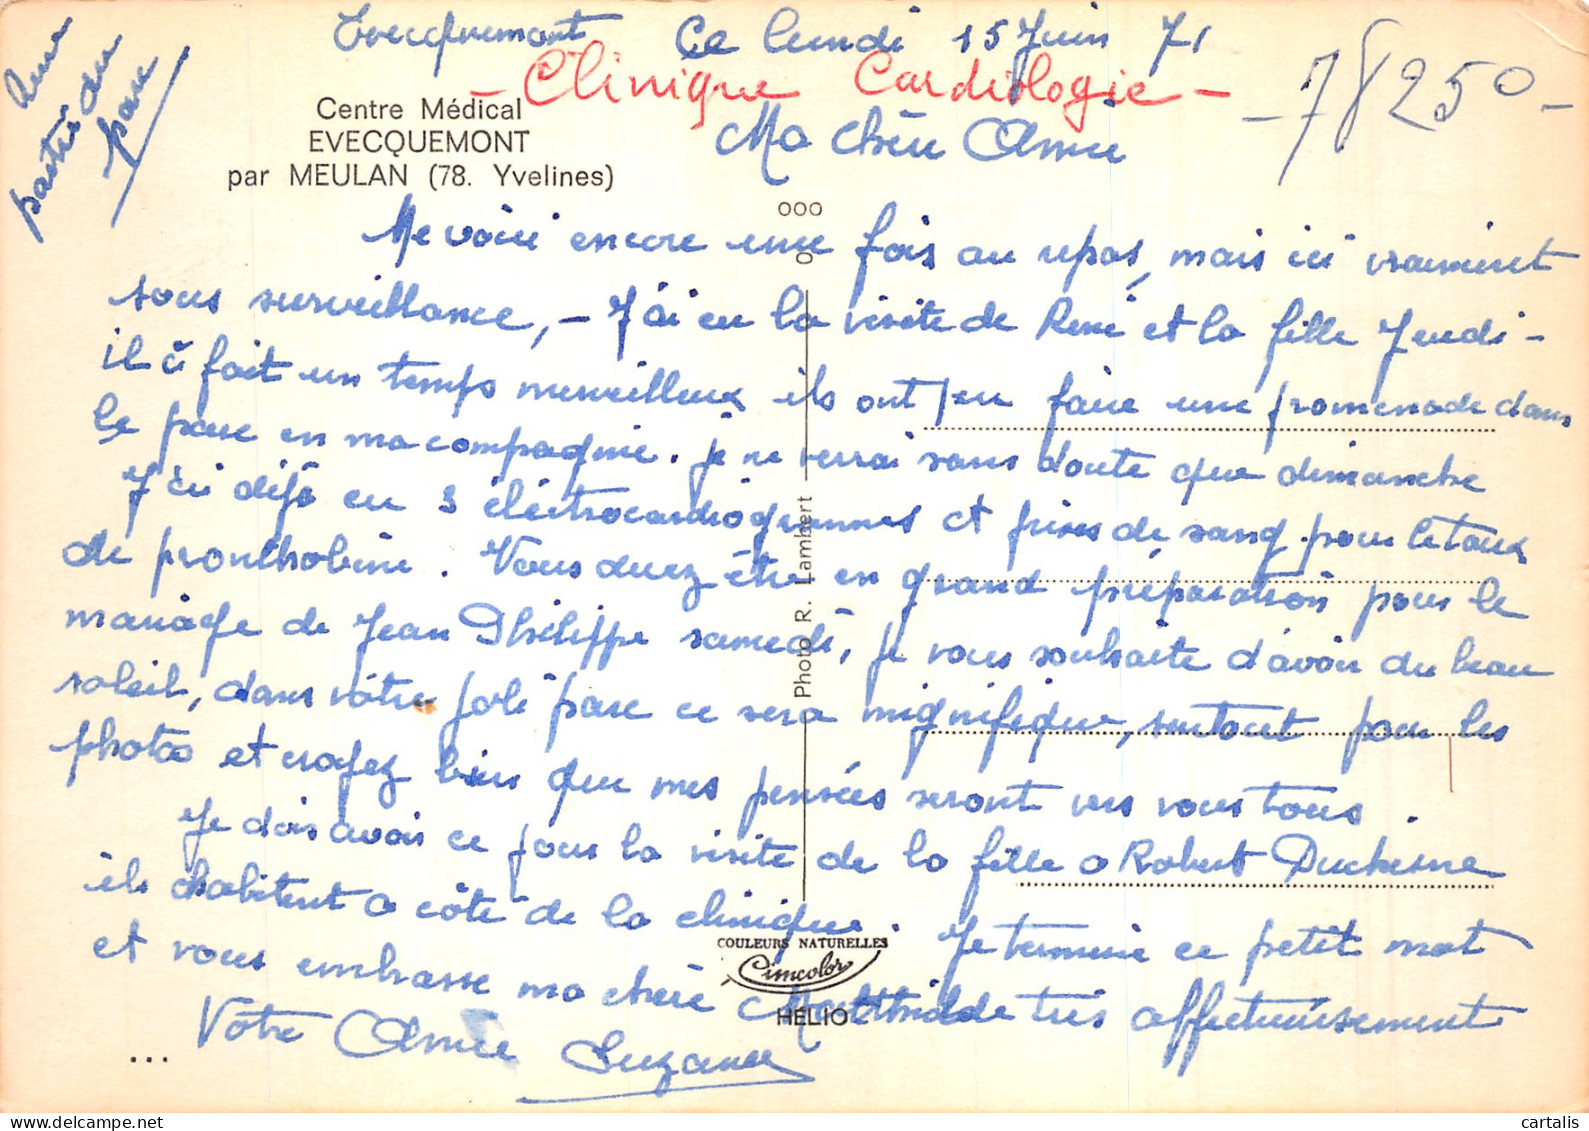 Evecquemont Ce lundi 15 Juin 71
- Clinique Cardiologie -
- 78250 -
Centre Médical
EVECQUEMONT
par MEULAN (78. Yvelines)
parc
Ma chère Amie
Me voici encore une fois au repos, mais ici vraiment
sous surveillance, - J'ai eu la visite de René et la fille Jeudi -
il a fait un temps merveilleux ils ont pu faire une promenade dans
le parc en ma compagnie. je ne verrai sans doute que dimanche
J'ai déjà eu 3 électrocardiogrammes et prises de sang pour le taux
de pronthobine. Vous devez être en grand préparation pour le
mariage de Jean Philippe samedi, je vous souhaite d'avoir du beau
soleil, dans votre joli parc ce sera magnifique, surtout pour les
photos et croyez bien que mes pensées seront vers vous tous.
Je dois avoir ce jour la visite de la fille a Robert Duchesne
ils habitent a côté de la clinique. Je termine ce petit mot
et vous embrasse ma chère Matthilde très affectueusement
Votre Amie Suzanne
...
ooo
Photo R. Lambert
COULEURS NATURELLES
Cimcolor
HÉLIO
cartalis
delcampe.net